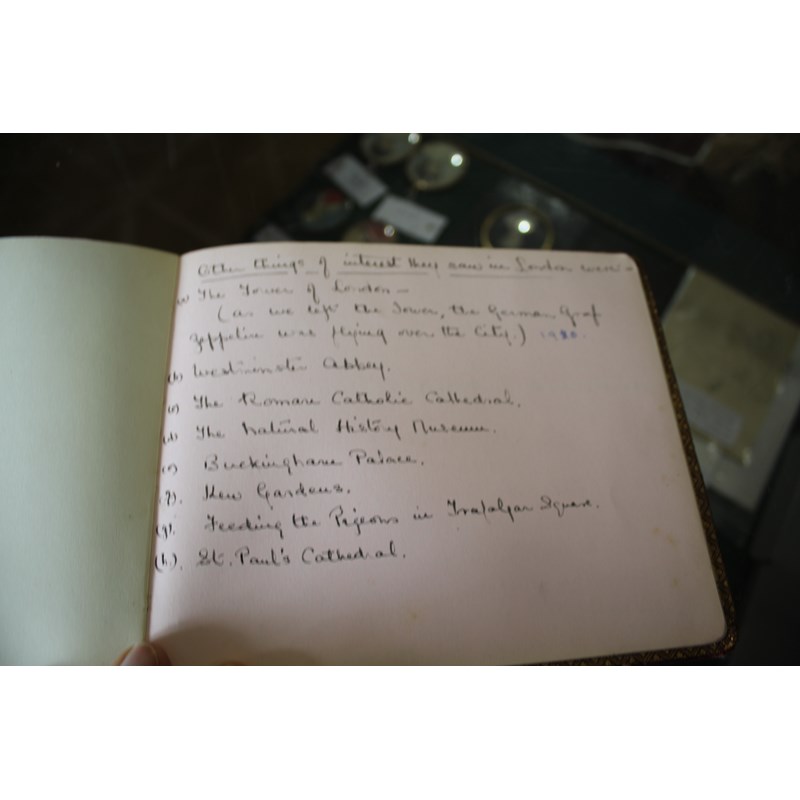 Other things of interest they saw in London were:-
(a) The Tower of London -
(as we left the Tower, the German Graf
Zeppelin was flying over the City.) 1930.
(b) Westminster Abbey.
(c) The Roman Catholic Cathedral.
(d) The Natural History Museum.
(e) Buckingham Palace.
(f). Kew Gardens.
(g). Feeding the Pigeons in Trafalgar Square.
(h). St. Paul's Cathedral.